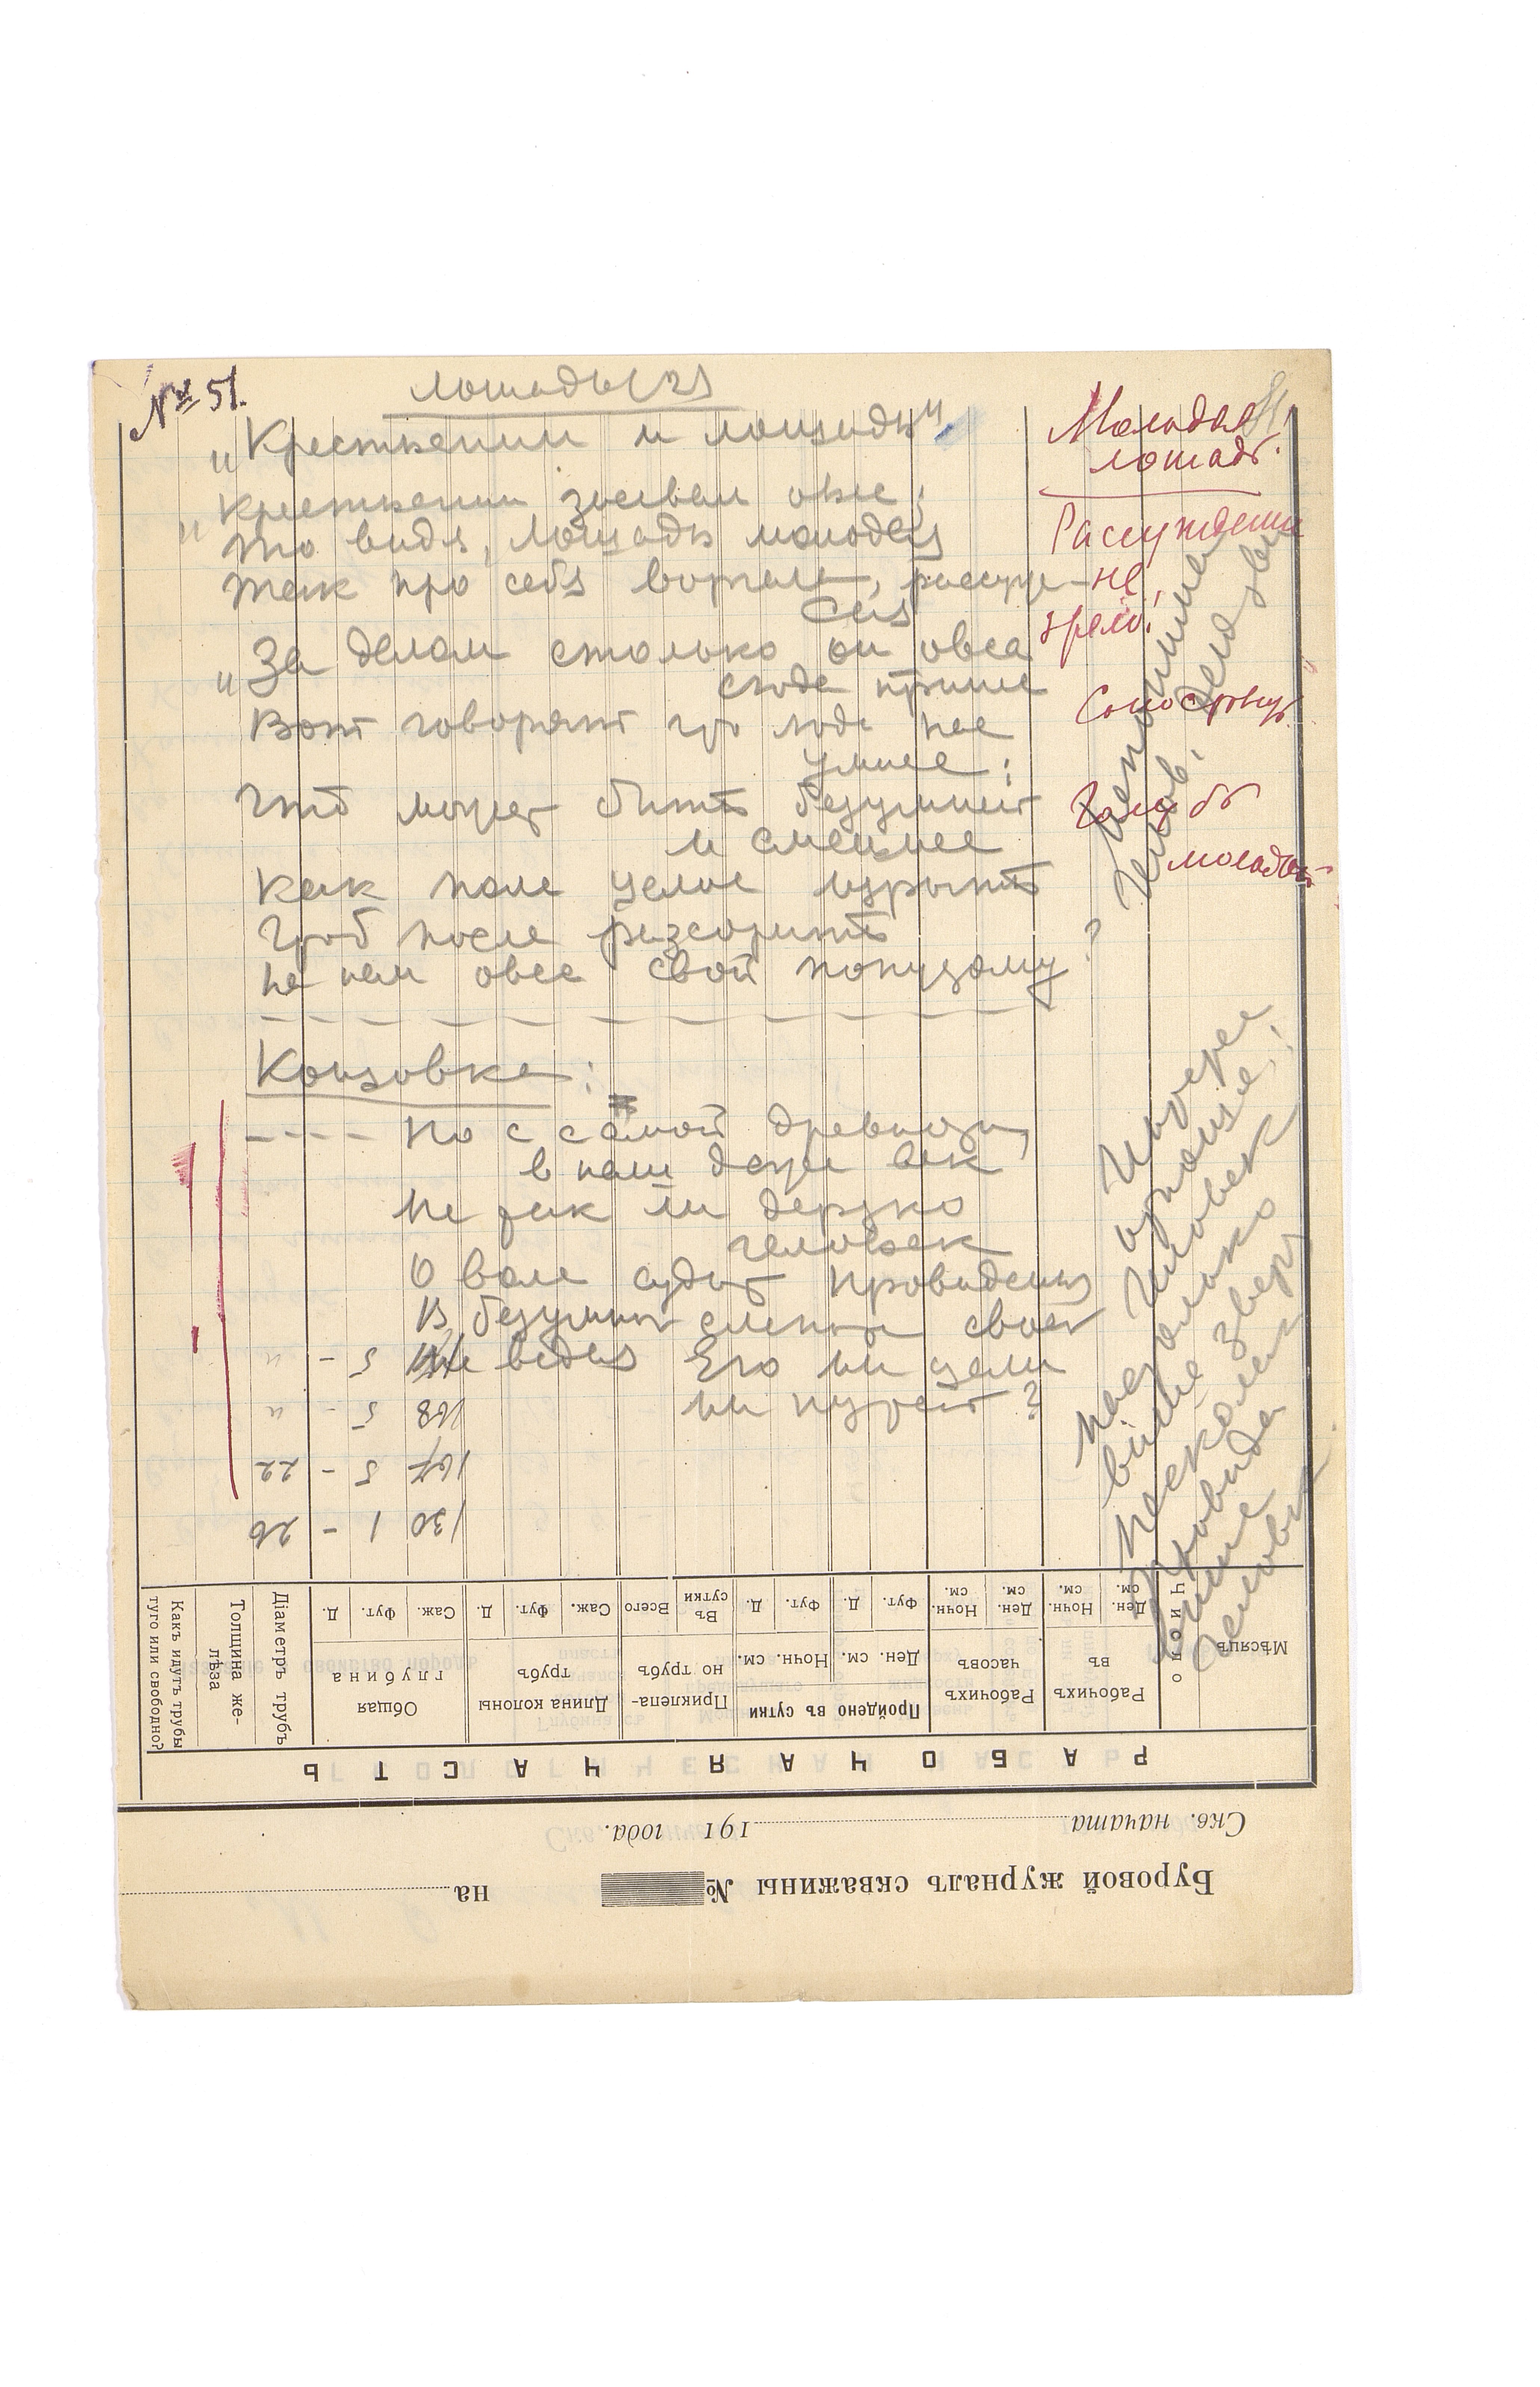 № 51.
лошадь (2)
„Крестьянин и лошадь"
„Крестьянин засевал овес;
То видя, Лошадь молодая
Так про себя ворчала, рассуждая
„За делом столько он овса
сюда принес
Вот говорят что люди нас
умнее:
Что может быть безумней
и смешнее
Как поле целое изрыть
Чтоб после рассорить
на нем овес свой попустому?
Концовка:
---- Но с самой древности,
в наш даже век
Не так ли дерзко
человек
О воле судит Провиденья
В безумной слепоте своей
Не ведая Его ни цели
ни путей?
Молодая
лошадь.
Рассуждение
не
зрело!
молодой
Настолько
выше зверя
Насколько
Человек
168 5 - "
167 5 - 22
130 1 - 26
Мѣсяцъ
Число
Рабочихъ въ
Ден. см.
Ночн. см.
Рабочихъ часовъ
Ден. см.
Ночн. см.
Пройдено въ сутки
Ден. см.
Фут.
Д.
Ночн. см.
Фут.
Д.
Приклепано трубъ
Въ сутки
Всего
Длина колоны трубъ
Саж.
Фут.
Д.
Общая глубина
Саж.
Фут.
Д.
Діаметръ трубъ
Толщина желѣза
Какъ идутъ трубы туго или свободно?
РАБОЧАЯ ЧАСТЬ
Скв. начата 191 года.
Буровой журналъ скважины № на